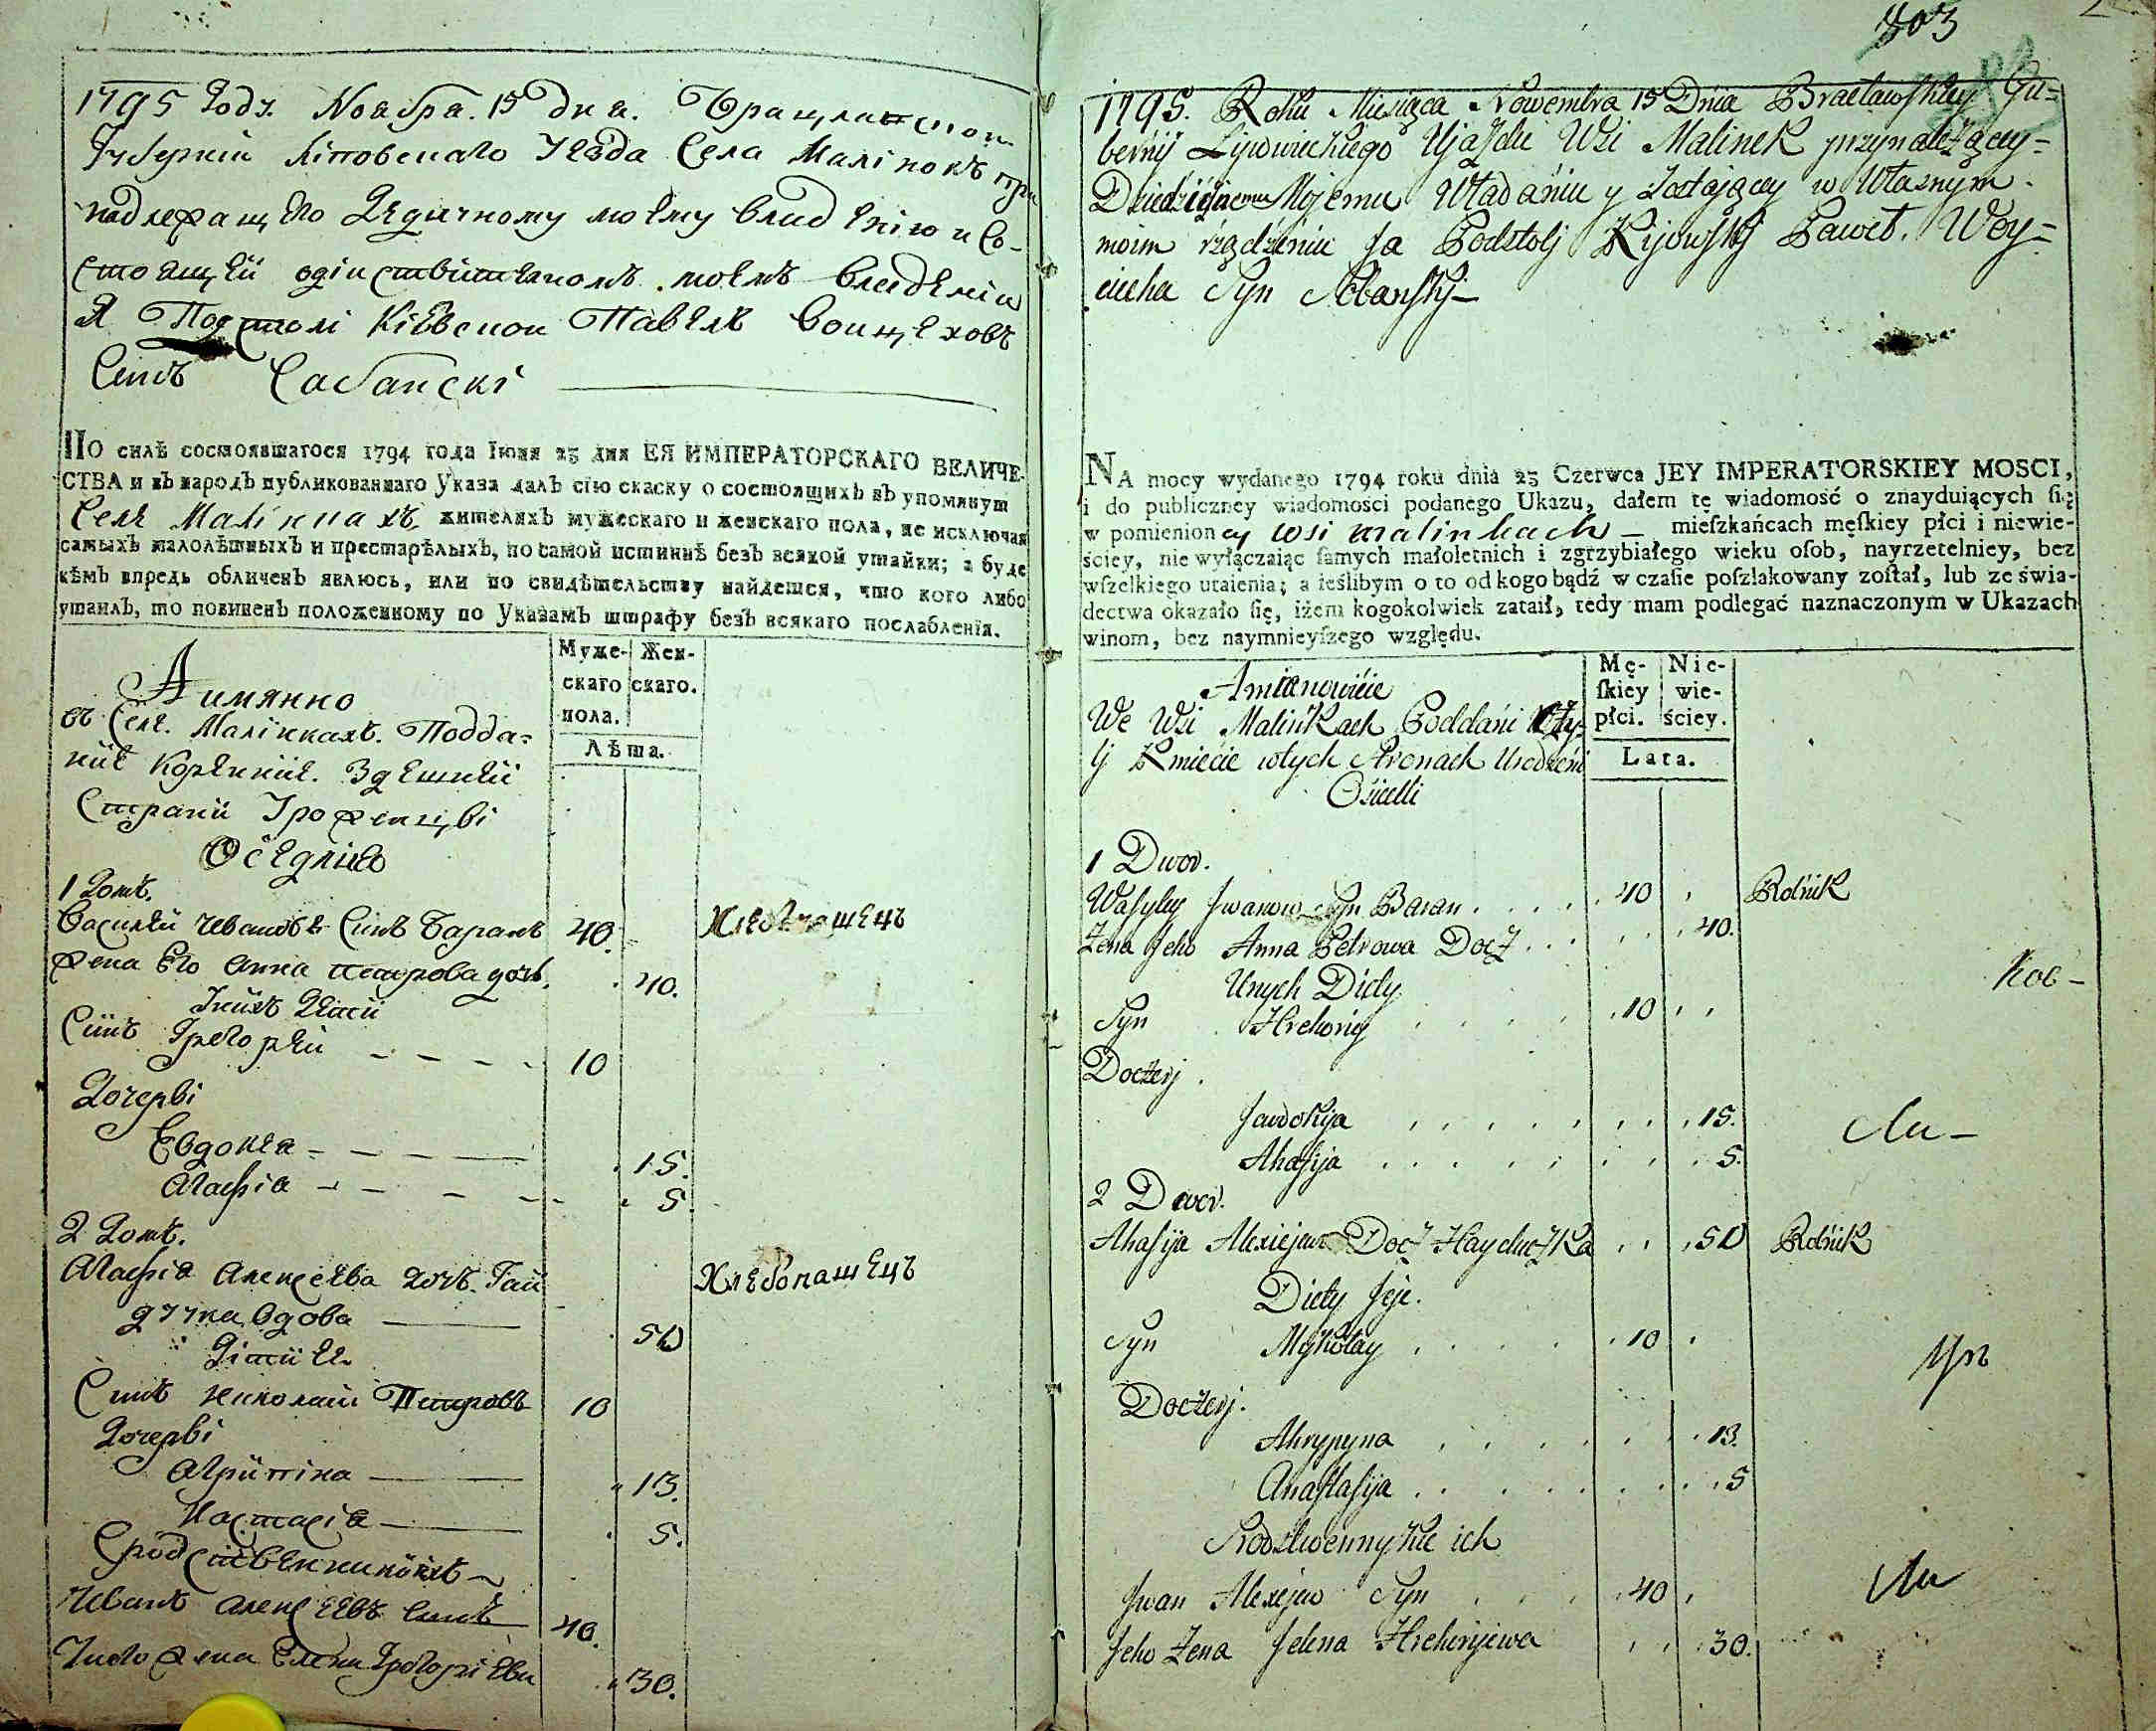 1795 Году. Ноабра. 15 дна. Брацлавской
Губернїи Липовецкаго Уезда Села Малінокъ при
надлежащего Дедичному моему владенію и Со-
стоящей одінственномъ моемъ владеніи
Я Подстолі Кіевской Павелъ Войцеховъ
Синъ Сабанскі
ПО силѣ состоявшагося 1794 года Iюня 23 дня ЕЯ ИМПЕРАТОРСКАГО ВЕЛИЧЕ-
СТВА и въ народъ публикованнаго Указа далъ сїю скаску о состоящихъ въ упомянут
Селе Малінкахъ жителяхъ мужескаго и женскаго пола, не исключая
самыхъ малолѣтныхъ и престарѣлыхъ, по самой истиннѣ безъ всякой утайки; а буде
кѣмъ впредь обличенъ явлюсь, или по свидѣтельству найдется, что кого либо
утаилъ, то повиненъ положенному по Указамъ штрафу безъ всякаго послабленїя.
Муже-
скаго
пола.
Жен-
скаго.
Лѣта.
А имянно
въ Селе. Малінкахъ. Подда-
ниe Корениie. Здешней
Страни Урожденцві
Оседліе
1 Домъ.
Василей Ивановъ Синъ Баранъ 40. Хлебопашецъ
жена Его Анна петрова дочь. 40.
Унихъ Дети
Синъ Грегорей 10
Дочерві
Евдокea 15.
Агафіа 5
2 Домъ.
Агафіа Алексеева дочъ. Гай Хлебопашецъ
дучка вдова 50
Діти Ее
Синъ Николай Петровъ 10
Дочерві
Агрипина 13.
Настасіа 5.
Сродственникихъ
Иванъ Алексеевъ синъ 40.
Унего жена Елена Грегоріева 30.
803
1795. Roku Miesiąca Nowembra 15 Dnia Bracławskiey Gu=
bernij Lipowieckiego Ujazdu Wsi Malinek przynależący=
Dziedzicznemu Mojemu Władaniu y Zostający w Własnym
moim rządzeniu Ja Podstolj Kijowskj Paweł. Woy=
ciecha Syn Sobanskj
NA mocy wydanego 1794 roku dnia 23 Czerwca JEY IMPERATORSKIEY MOSCI,
i do publiczney wiadomości podanego Ukazu, dałem tę wiadomość o znayduiących ſię
w pomienioney wsi malinkach mieſzkańcach męſkiey płci i niewie-
ściey, nie wyłączaiąc ſamych małoletnich i zgrzybiałego wieku oſob, nayrzetelniey, bez
wſzelkiego utaienia; a ieślibym o to od kogo bądź w czaſie poſzlakowany zoſtał, lub ze świa-
dectwa okazało ſię, iżem kogokolwiek zataił, tedy mam podlegać naznaczonym w Ukazach
winom, bez naymnieyſzego względu.
Mę-
ſkiey
płci.
Nie-
wie-
ściey.
Lata.
Amianowicie
We Wsi Malinkach Poddani
lj Kmiecie wtych Stronach Urodzeni
Osiedli
1 Dwor.
Wasyley Jwanow Syn Baran 40 Rolnik
Żena Jeho Anna Petrowa Docz 40.
Unych Didy
Syn Hrehoriy 10
Doczerj.
Jawdokija 15.
Ahafija 5.
2 Dwor.
Ahafija Alexiejewa Docz Hayduczka 50 Rolnik
Diety Jeje.
Syn Mykołay 10
Doczerj.
Ahrypyna 13.
Anastasija 5
Srodstwennykie ich
Jwan Alexiejew Syn 40
Jeho Żena Jelena Hrehorijewa 30.